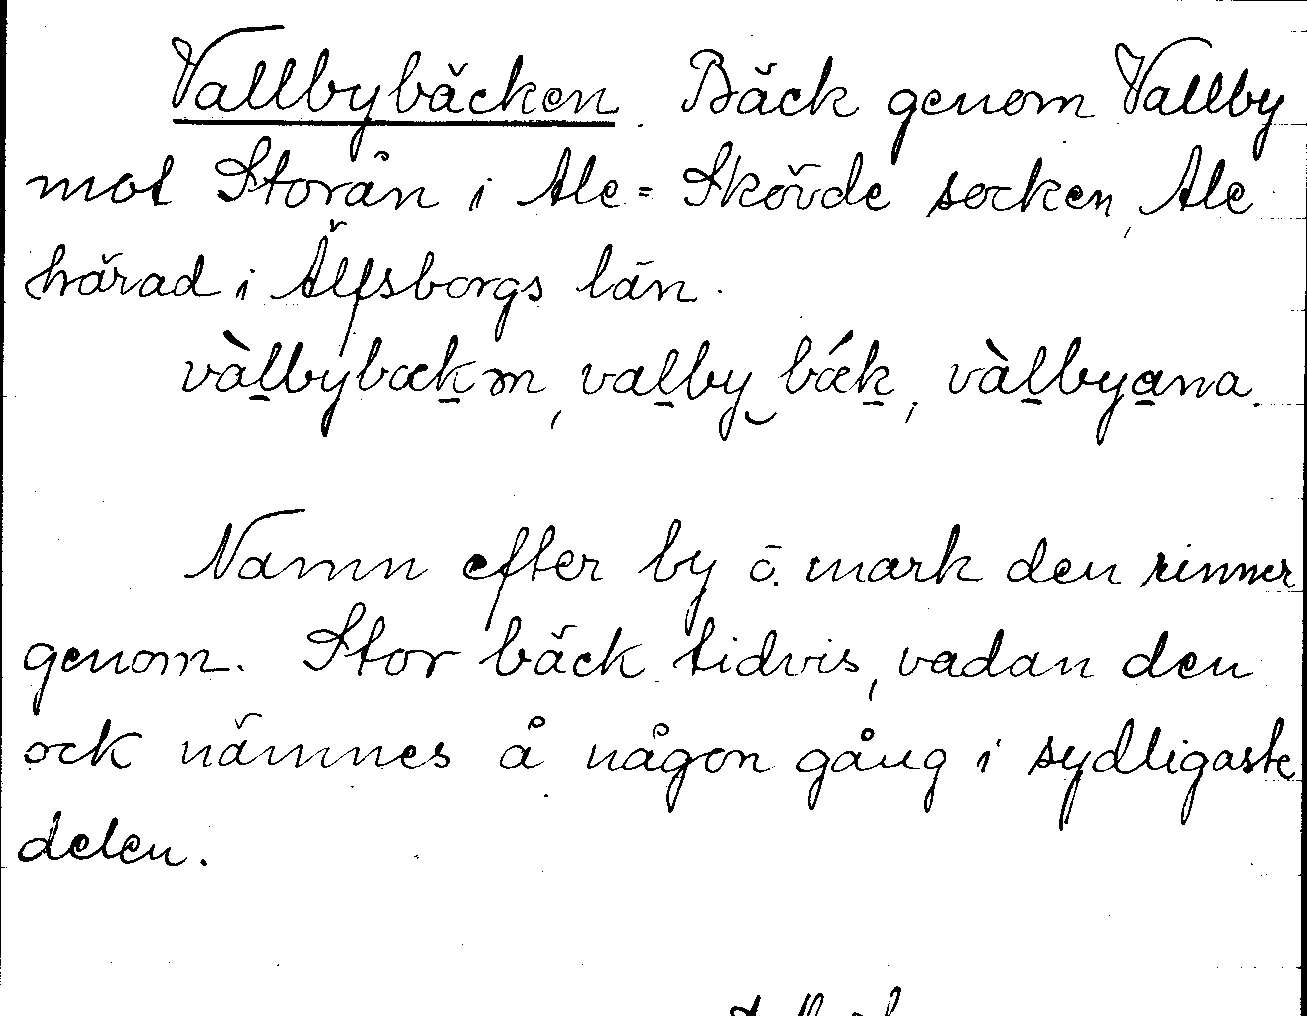 Vallbybäcken. Bäck genom Vallby
mot Storån i Ale=Skövde socken, Ale
härad i Älfsborgs län.
vàlbybækm, valby bǽk, vàlbyana.
Namn efter by o. mark den rinner
genom. Stor bäck tidvis, vadan den
ock nämnes å någon gång i sydligaste
delen.